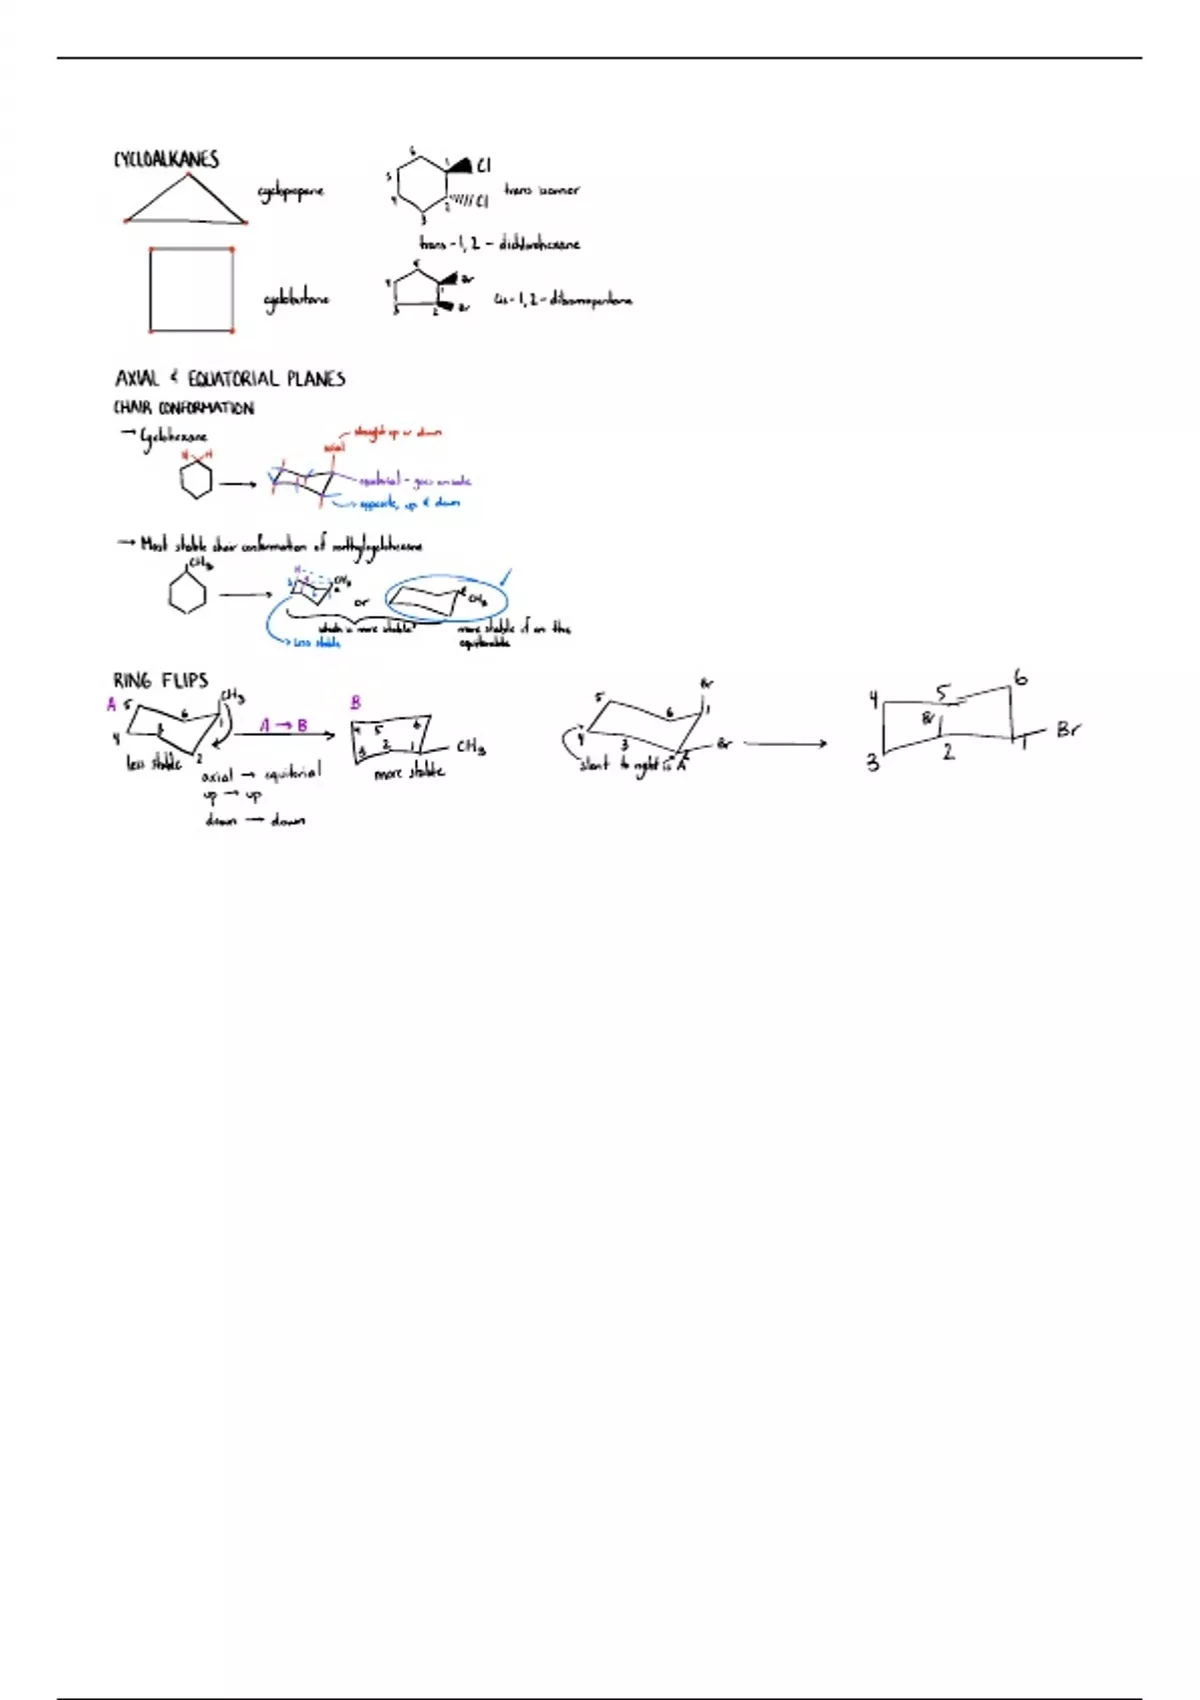 CYCLOALKANES
cyclopropane
6
1
Cl
5
4
2
Cl
3
trans isomer
trans-1,2-dichlorohexane
cyclobutane
5
4
Br
1
3
2
Br
cis-1,2-dibromopentane
AXIAL & EQUATORIAL PLANES
CHAIR CONFORMATION
→ Cyclohexane
H H
straight up or down
axial
equatorial - goes outside
opposite, up & down
→ Most stable chair conformation of methylcyclohexane
CH3
H
3
CH3
or
CH3
which is more stable?
less stable
more stable if on the
RING FLIPS
A
5
6
CH3
1
4
3
2
less stable
A → B
axial → equitorial
up → up
down → down
B
4
5
6
3
2
1
CH3
more stable
5
6
Br
1
4
3
2
Br
slant to right is A
4
5
6
Br
3
2
1
Br